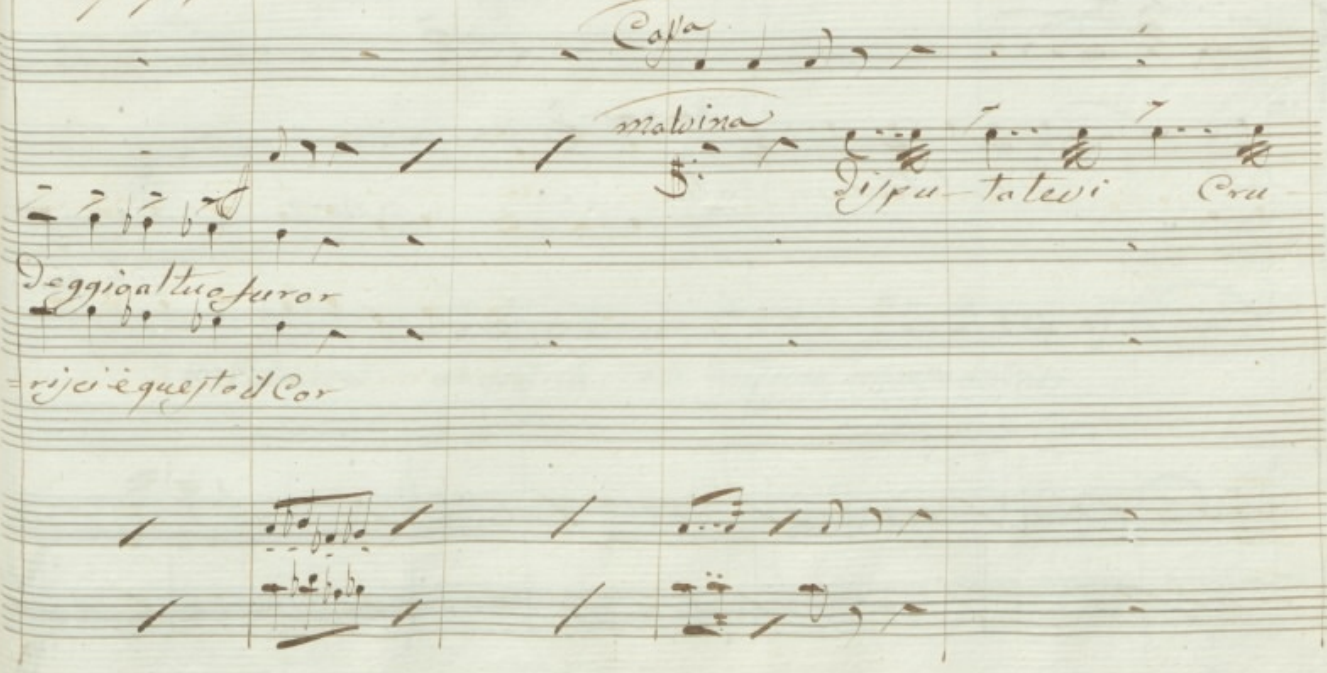 Malvina
Dispu-tatevi Cru
Deggio al tuo furor
=risci è questo il Cor